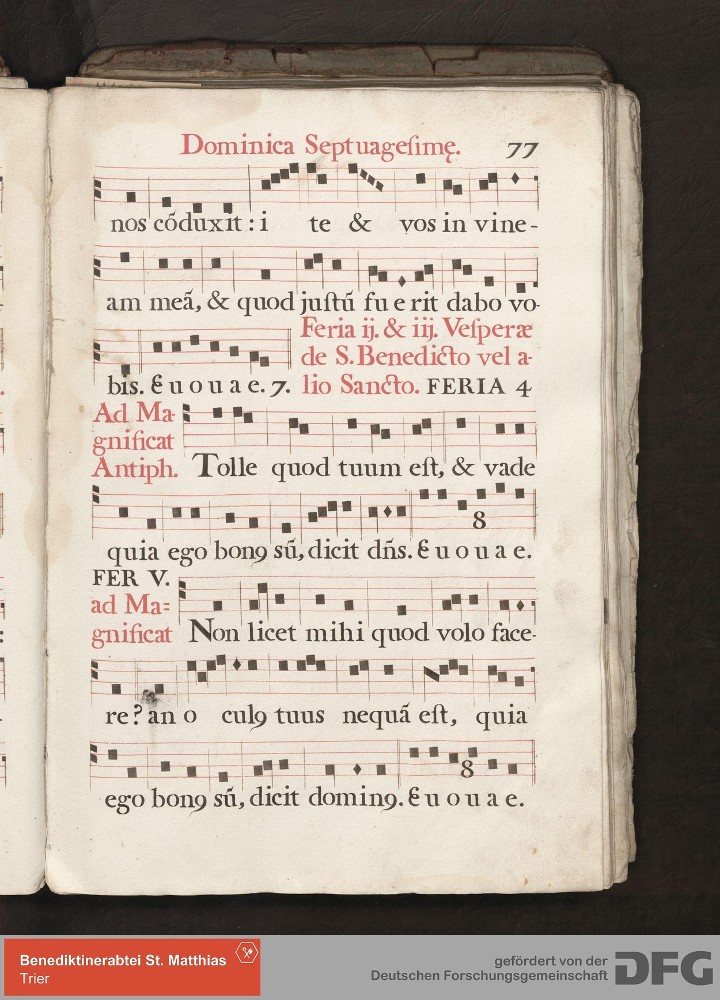 Dominica Septuageſimę. 77
nos cõduxit : i te & vos in vine-
am meã, & quod juſtũ fu e rit dabo vo-
Feria ij. & iij. Veſperæ
de S. Benedicto vel a-
bis. E u o u a e. 7. lio Sancto. FERIA 4
Ad Ma-
gnificat
Antiph. Tolle quod tuum eſt, & vade
8
quia ego bonꝯ sũ, dicit dñs. E u o u a e.
FER V.
ad Ma=
gnificat Non licet mihi quod volo face-
re? an o culꝯ tuus nequã eſt, quia
8
ego bonꝯ sũ, dicit dominꝯ. E u o u a e.
Benediktinerabtei St. Matthias
Trier
gefördert von der
Deutschen Forschungsgemeinschaft DFG